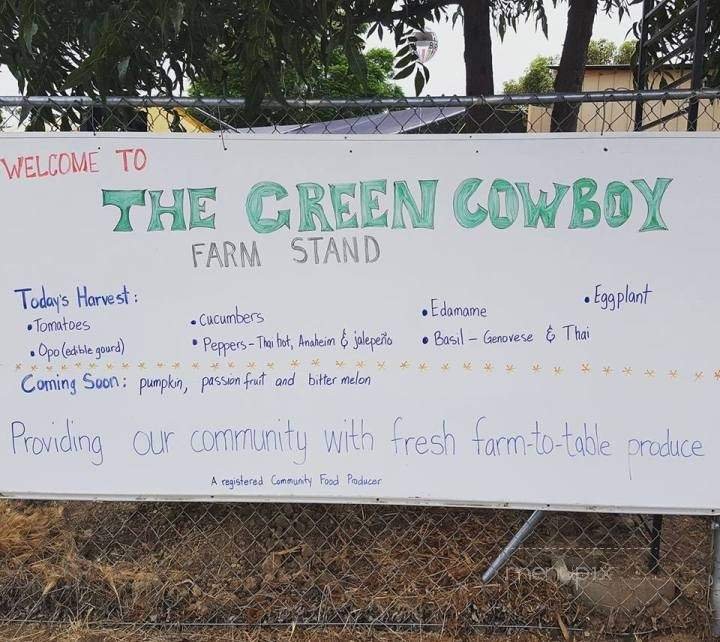 WELCOME TO
THE GREEN COWBOY
FARM STAND
Today's Harvest:
• Tomatoes
• Opo (edible gourd)
• Cucumbers
• Peppers - Thai hot, Anaheim & jalepeño
• Edamame
• Basil - Genovese & Thai
• Eggplant
Coming Soon: pumpkin, passion fruit and bitter melon
Providing our community with fresh farm-to-table produce
A registered Community Food Producer
menupix